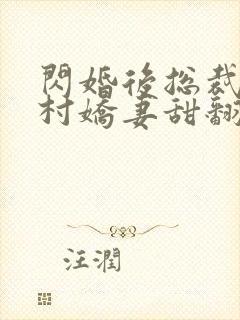 閃婚後總裁
村嬌妻甜翻
汪潤